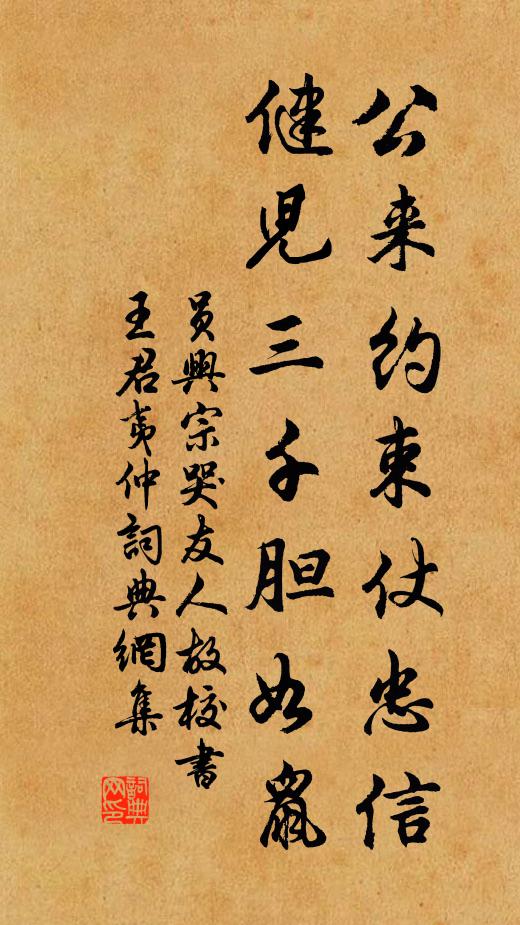 公来約束仗忠信
健児三千胆如鼠
員興宗哭友人故校書
王君夷仲詞典網集
詞典
网印